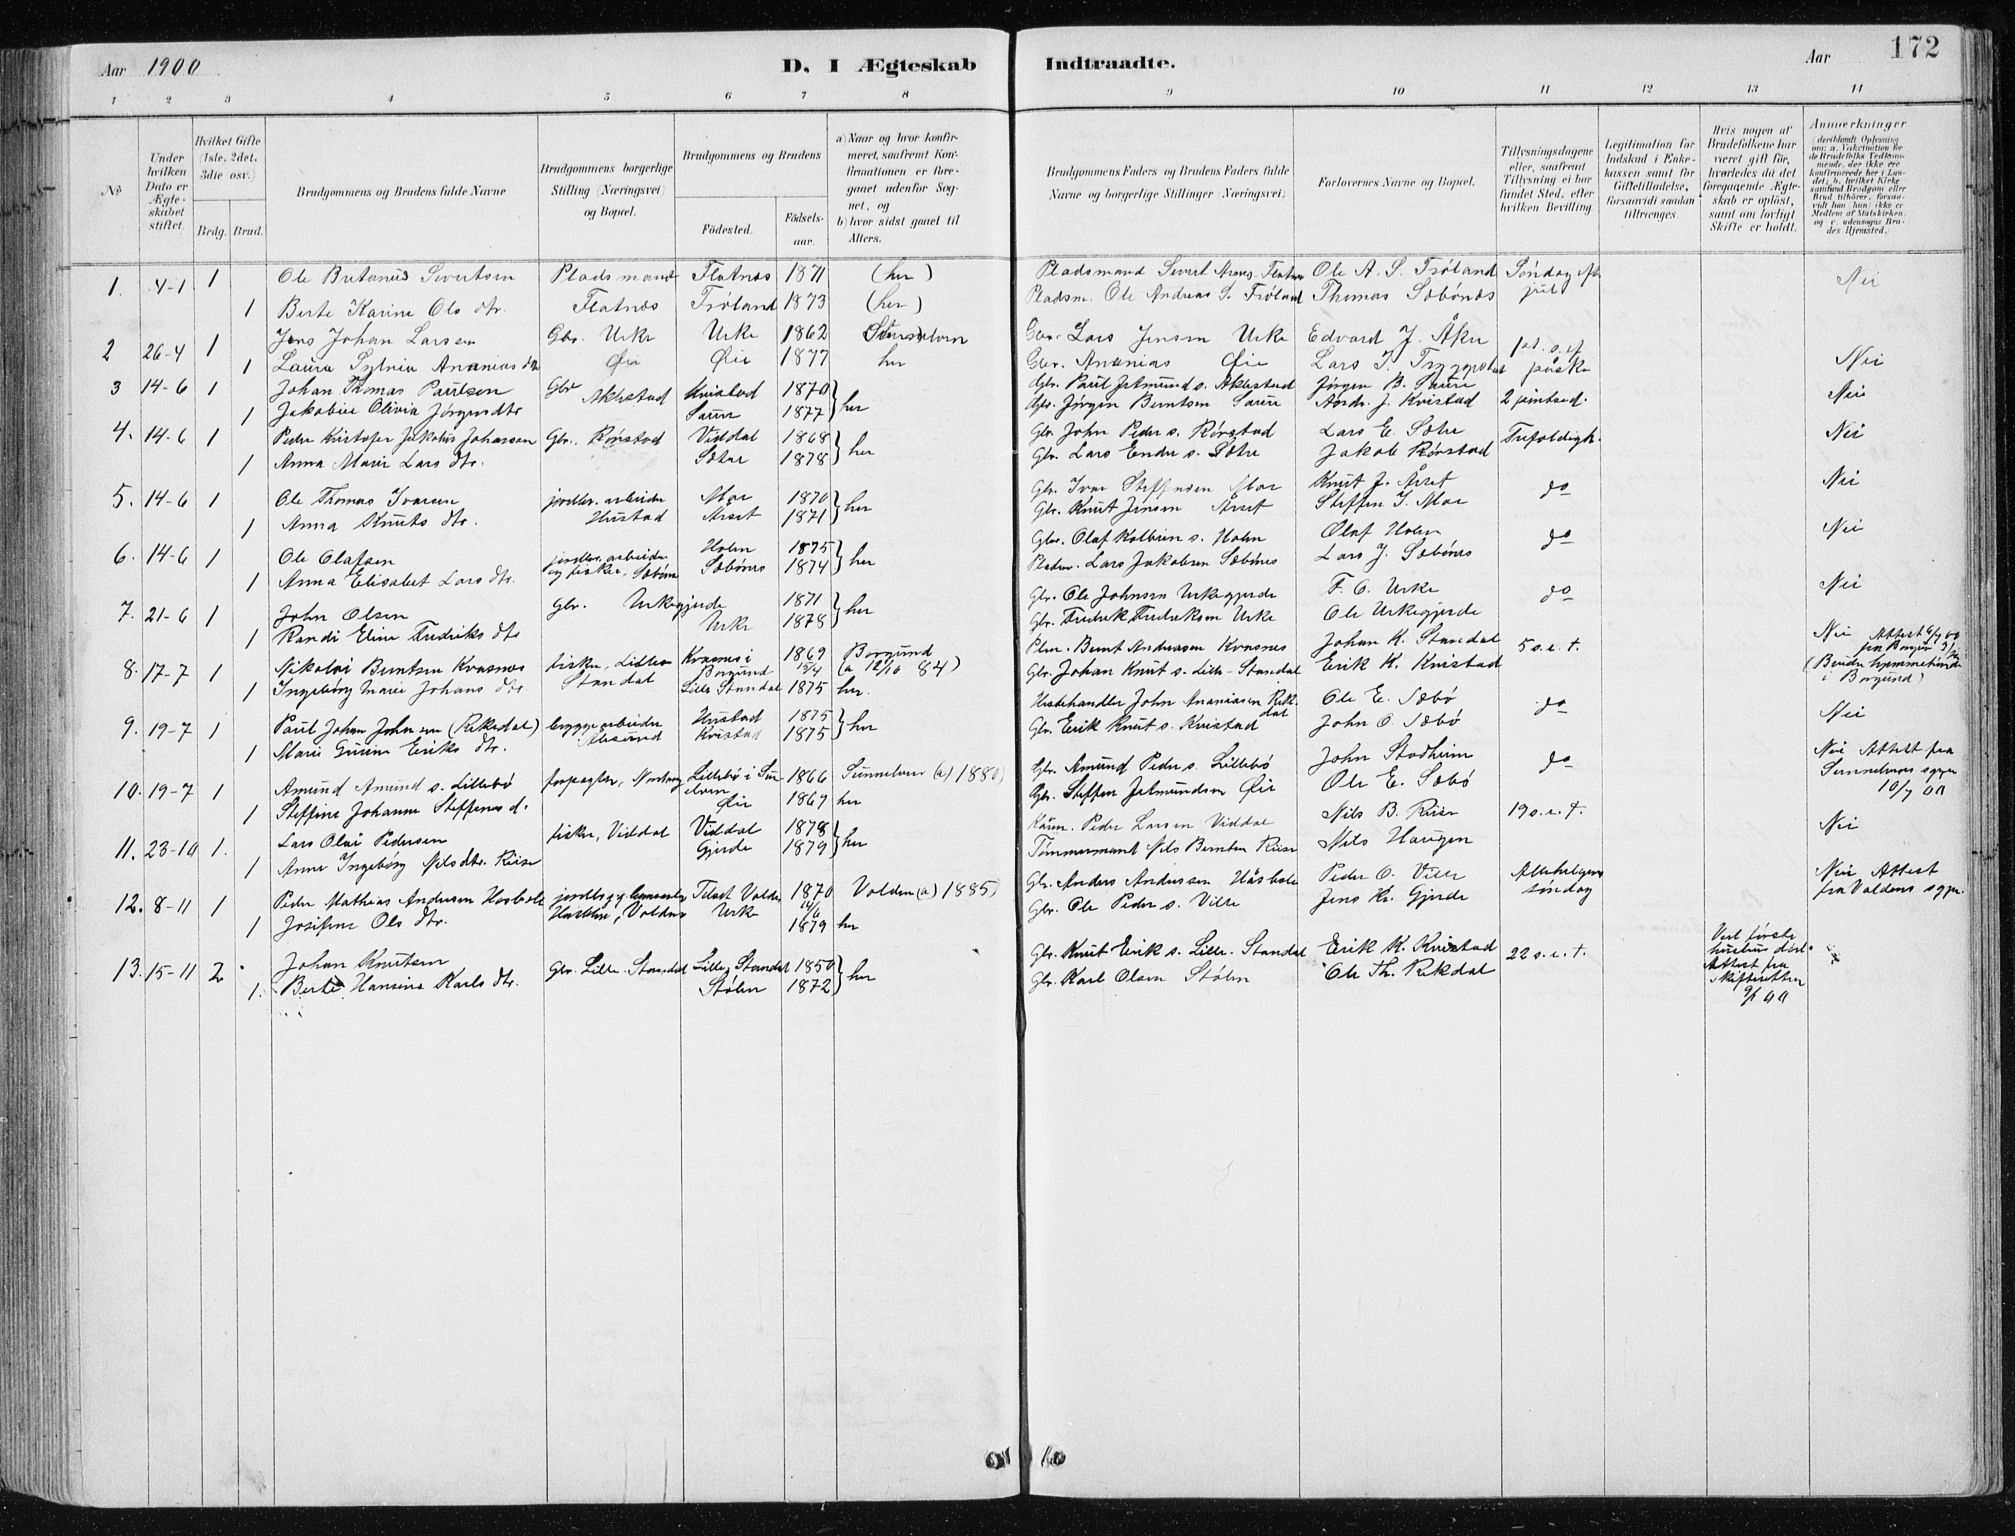 Aar 1900
D. I Ægteskab Indtraadte.
Aar
172
1 2 3 4 5 6 7 8 9 10 11 12 13 14
No
Under hvilken Dato er Ægteskabet stiftet.
Hvilket Gifte (1ste, 2det, 3die osv.)
Brdg. Brud.
Brudgommens og Brudens fulde Navne
Brudgommens borgerlige Stilling (Næringsvei) og Bopæl.
Brudgommens og Brudens
Födested.
Födselsaar.
a) Naar og hvor konfirmeret, saafremt Konfirmationen er foregaaet udenfor Sognet, og
b) hvor sidst gaaet til Alters.
Brudgommens Faders og Brudens Faders fulde Navne og borgerlige Stillinger (Næringsvei).
Forlovernes Navne og Bopæl.
Tillysningsdagene eller, saafremt Tillysning ei har fundet Sted, efter hvilken Bevilling.
Legitimation for Indskud i Enkekassen samt for Giftetilladelse, forsaavidt saadan tiltrænges.
Hvis nogen af Brudefolkene har været gift för, hvorledes da det foregaaende Ægteskab er oplöst, samt om lovligt Skifte er holdt.
Anmerkninger
1. 4-1 1 Ole Sivertsen Pladsmand Flatnæs 1871 (her) Pladsmand Sivert Flatnæs Ole A. S. Tröland Söndag eft. jul Nei
1 Berte Karine Ols dtr. Flatnæs Tröland 1873 (her) Pladsm. Ole Andreas S. Tröland Thomas Sæbönæs
2 26-4 1 Jens Johan Larsen Gbr. Urke Urke 1862 Gbr. Lars Jensen Urke Edvard J. Åkre 1st. s. ef. påske Nei
1 Laura Sylvia Ananias dtr Øie Øie 1877 her Gbr. Ananias Øie Lars J.
3 14-6 1 Johan Thomas Paulsen Gbr Kvistad 1870 her Gbr. Paul Jetmund s. Jörgen B. Saure 2 pintsed. Nei
1 Jakobine Olivia Jörgensdtr Saure 1877 Gbr. Jörgen Berntsen Saure J. Kvistad
4. 14-6 1 Peder Kristofer Jakobus Johansen Gbr. Rörstad Viddal 1868 her Gbr. John Peder s. Rörstad Lars E. Sætre Trefoldigh. Nei
1 Anna Marie Lars dtr. Sætre 1878 Gbr. Lars Endre s. Sætre Jakob Rörstad
5. 14-6 1 Ole Thomas Ivarsen jordbr. arbeider Hustad Moe 1870 her Gbr. Ivar Steffensen Moe Knut J. Årset do Nei
1 Anna Knuts dtr. Årset 1871 Gbr. Knut Jensen Årset Steffen I. Moe
6. 14-6 1 Ole Olafsen jordbr. arbeider og fisker, Sæbönes Holen 1875 her Gbr. Olaf Kolbein s. Holen Olaf Holen do Nei
1 Anna Elisabet Lars dtr. Sæbönes 1874 Lars Jakobsen Sæbönes Lars J. Sæbönes
7. 21-6 1 John Olsen Gbr. Urkegjerde 1871 her Gbr. Ole Johnsen Urkegjerde F. O. Urke do Nei
1 Randi Eline Fredriks dtr Urke 1878 Gbr. Fredrik Fredriksen Urke Ole Urkegjerde
8. 17-7 1 Nikolai Berntsen Kvasnes fisker, Lille Standal Kvasnes i Borgund 1869 15/4 Borgund (a 12/10 84) Bernt Andreassen Kvasnes Johan K. Standal 5 s. e. t. Nei Attest 6/7 00 fra Borgund
1 Ingeborg Marie Johans dtr Lille Standal 1875 her. Gbr. Johan Knut s. Lille-Standal Erik K. Kvistad (Brudens hjemsted i Borgund)
9. 19-7 1 Paul Johan Johnsen (Rekedal) bryggearbeider Ålesund Hustad 1875 her Hestehandler John Ananiassen Rekkedal Ole E. Sæbö do Nei
1 Marie Gurine Eriks dtr. Kvistad 1875 Gbr. Erik Knut s. Kvistad John O. Sæbö
10. 19-7 1 Amund Amund s. Lillebö forpagter, Lillebö i Sunelven 1866 Sunnelven (a) 1880 Gbr. Amund Peder s. Lillebö John Stadheim do Nei Attest fra Sunnelvens sgpr. 10/7 00
1 Steffine Johanne Steffens d. Øie 1869 her Gbr. Steffen Jetmundsen Øie Ole E. Sæbö
11. 23-10 1. Lars Olai Pedersen fisker, Viddal Viddal 1878 her Peder Larsen Viddal Nils B. Riise 19 s. e. t. Nei
1 Anne Ingeborg Nilsdtr. Riise Gjerde 1879 Tömmermand Nils Berntsen Riise Nils Haugen
12. 8-11 1 Peder Mathias Andersen Volden 1870 Volden (a) 1885 Gbr. Anders Andersen Peder O. Ville Allehelgens söndag Nei Attest fra Voldens sgpr.
1 Josefine Ols dtr. Urke 14/6 1879 her Gbr. Ole Peder s. Ville Jens Kr. Gjerde
13. 15-11 2 Johan Knutsen Gbr. Lille-Standal Lille Standal 1850 her Gbr. Knut Erik s. Lille-Standal Erik K. Kvistad 22 s. e. t. Ved förste hustrus död. Attest fra skifteretten 00
1. Berte Hansine Karls dtr. Stölen 1872 Gbr. Karl Olsen Stölen Ole Th. Rekdal